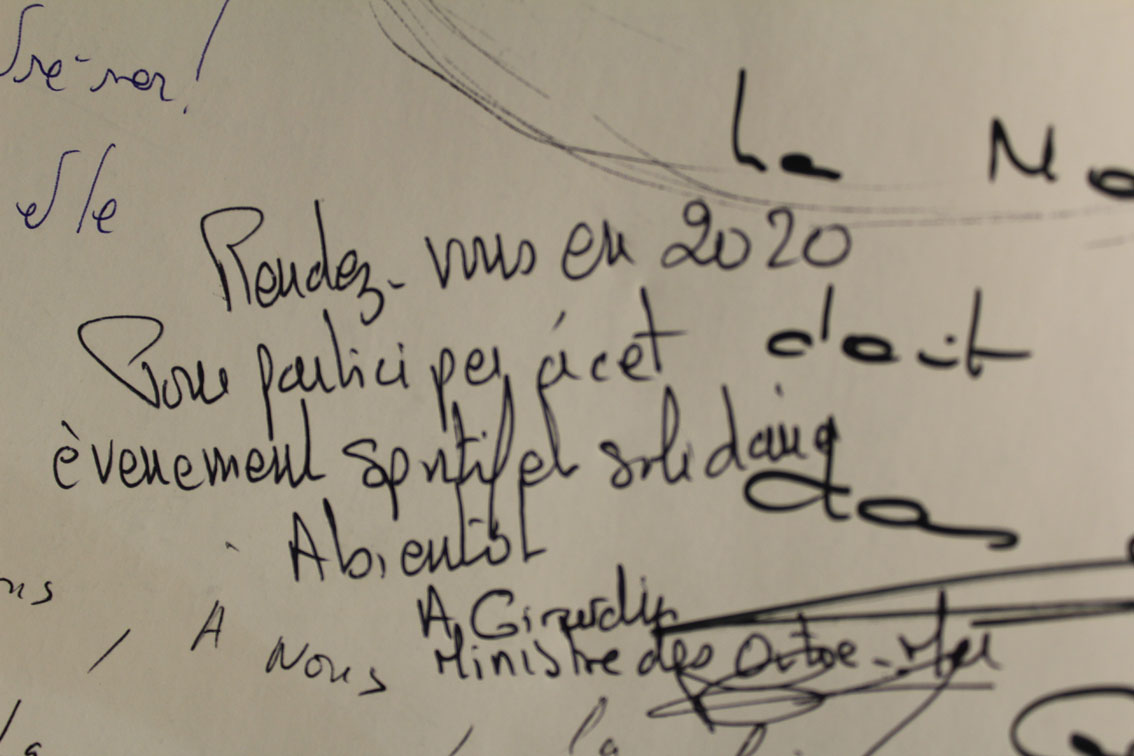 La
Rendez-vous en 2020
Pour participer à cet
doit
èvenement sportif et solidaire
Abientôt
A. Girardin
Ministre des Outre-Mer
A
Nous
la